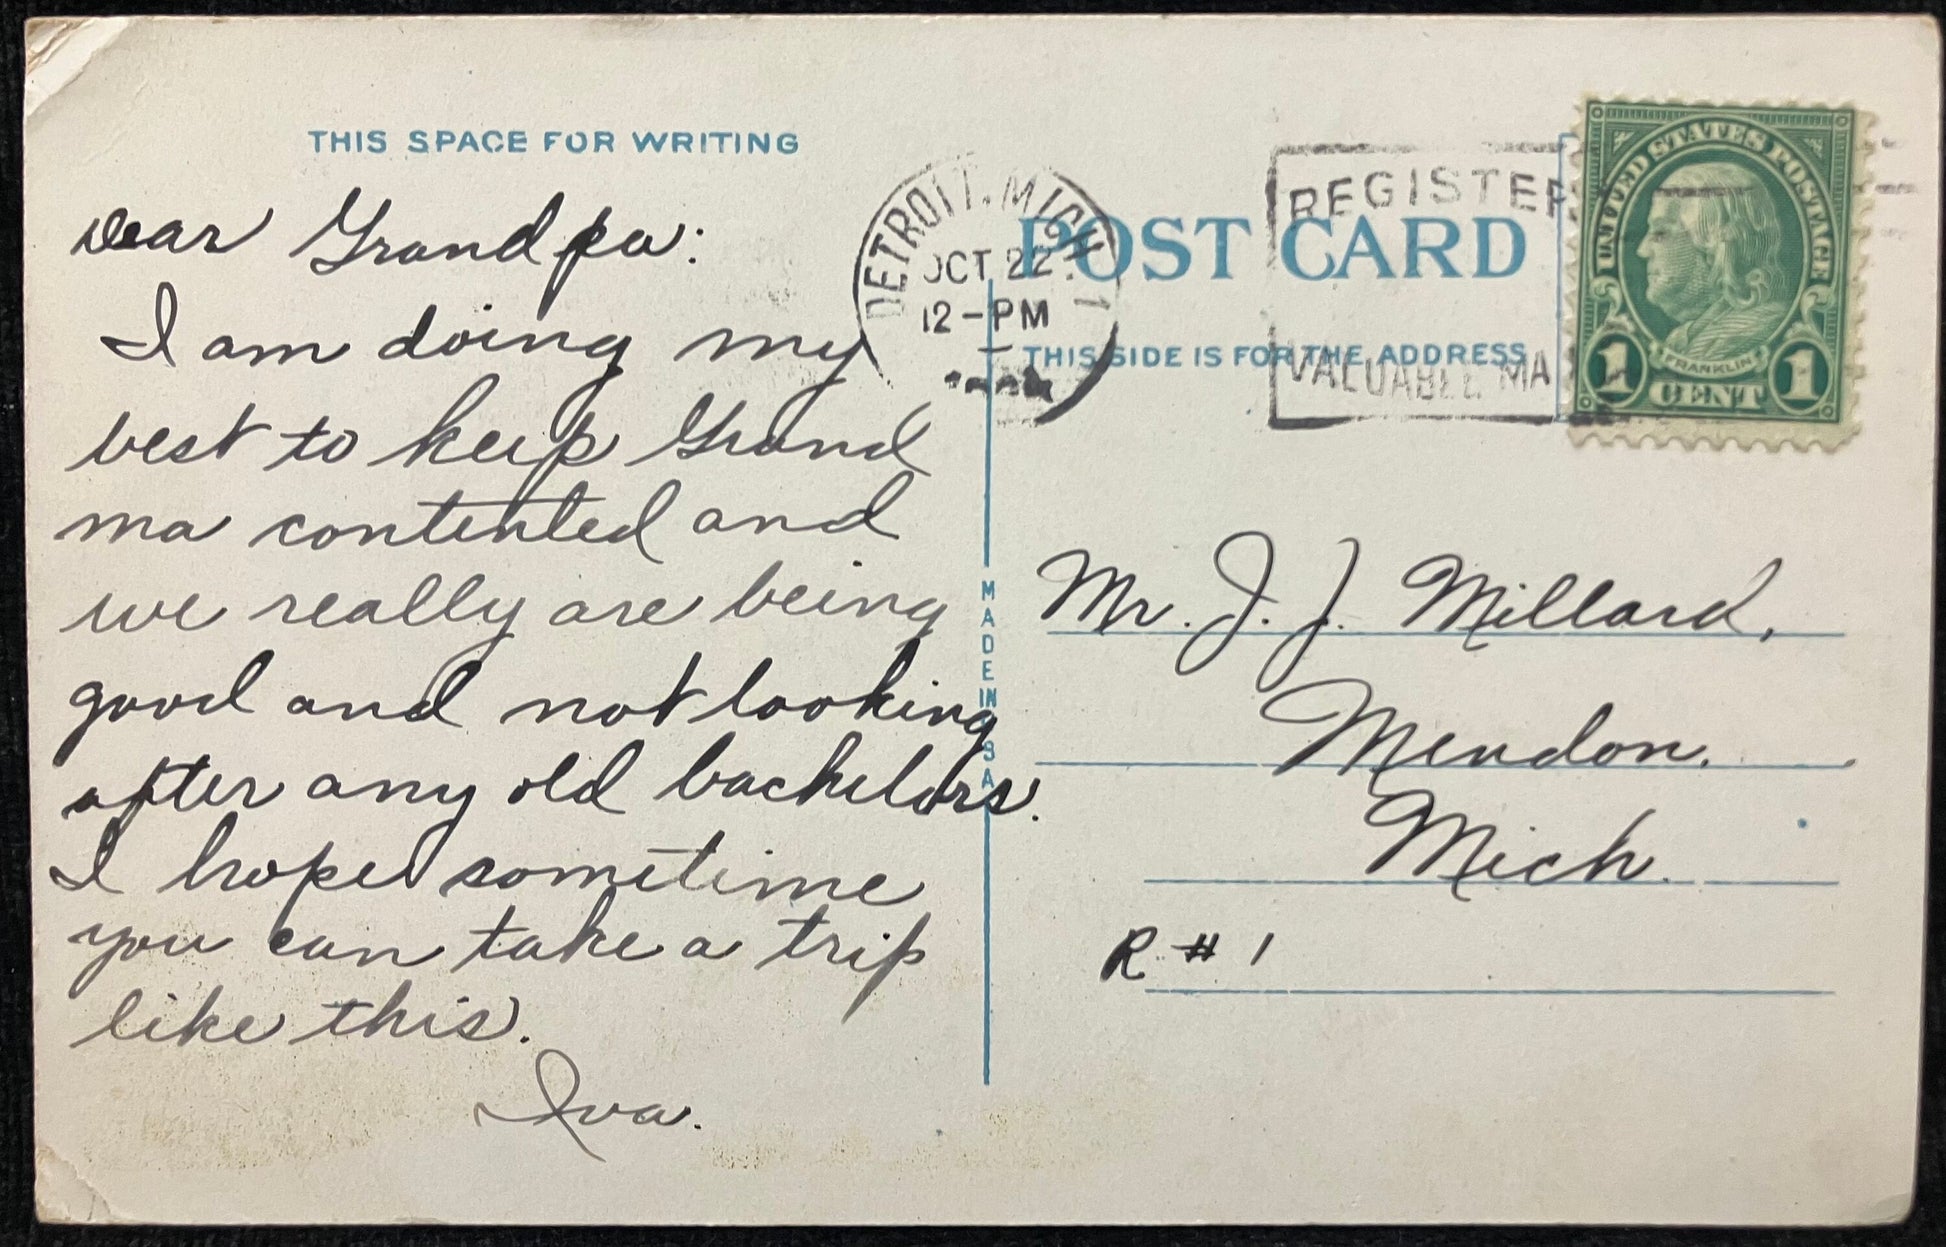 THIS SPACE FOR WRITING
Dear Grandpa:
I am doing my
best to keep Grand
ma contented and
we really are being
good and not looking
after any old bachelors.
I hope sometime
you can take a trip
like this.
Iva.
DETROIT, MICH 1
OCT 22
12-PM
REGISTER
VALUABLE MA
UNITED STATES POSTAGE
FRANKLIN
1 CENT 1
POST CARD
THIS SIDE IS FOR THE ADDRESS
MADE IN USA
Mr. J. J. Millard,
Mendon.
Mich.
R #1